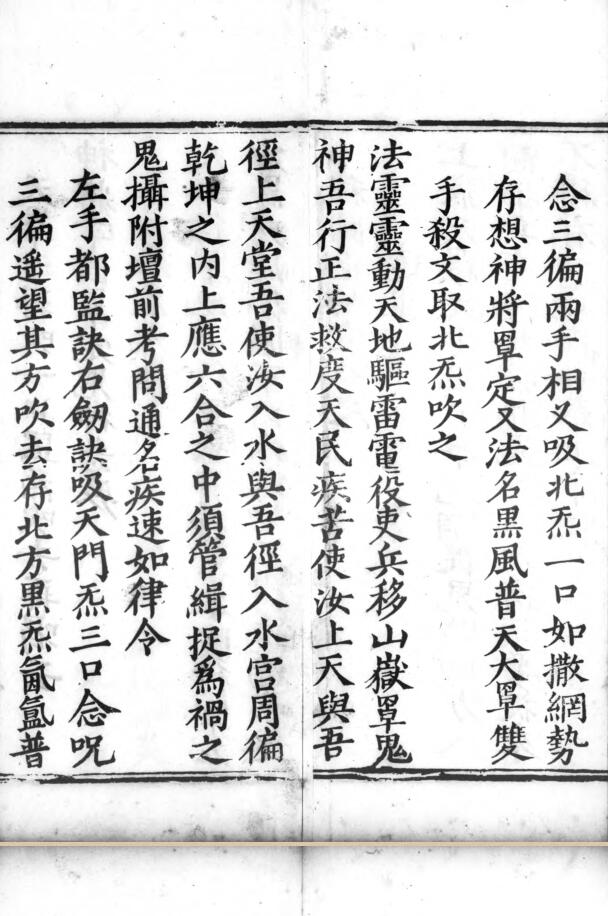 念三徧兩手相叉吸北炁一口如撒網勢
存想神將罩定又法名黑風普天大罩雙
手殺文取北炁吹之
法靈靈動天地驅雷電役吏兵移山嶽罩鬼
神吾行正法救度天民疾苦使汝上天與吾
徑上天堂吾使汝入水與吾徑入水宮周徧
乾坤之内上應六合之中須管緝捉爲禍之
鬼攝附壇前考問通名疾速如律令
左手都監訣右劒訣吸天門炁三口念呪
三徧遥望其方吹去存北方黒炁氤氲普